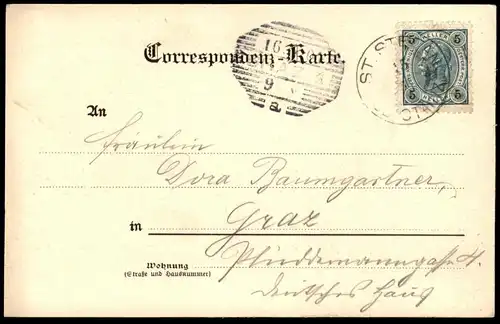 Correspondenz-Karte.
16
9
a
ST. ST
5 HELLER 5
5 5
An
Fräulein
Dora Baumgartner,
in
Graz
Plüddemanngasse 4.
Wohnung
(Straße und Hausnummer)
deutsches Haus